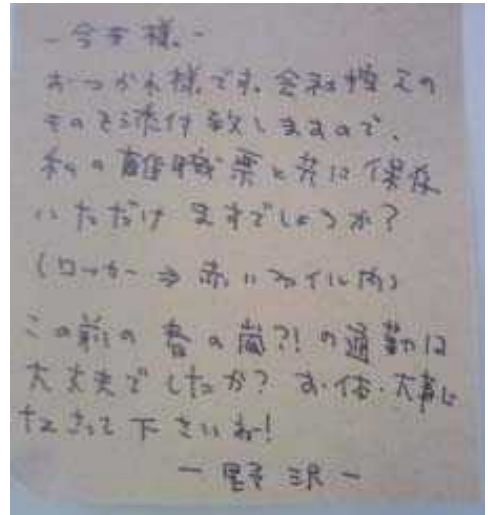 -今井様.-
おつかれ様です。会社控えの
ものを添付致しますので、
私の離職票と共に保存
いただけますでしょうか?
(ロッカー⇒赤いファイル内)
この前の春の嵐?!の通勤は
大丈夫でしたか? お・体・大事に
なさって下さいね!
-野沢-